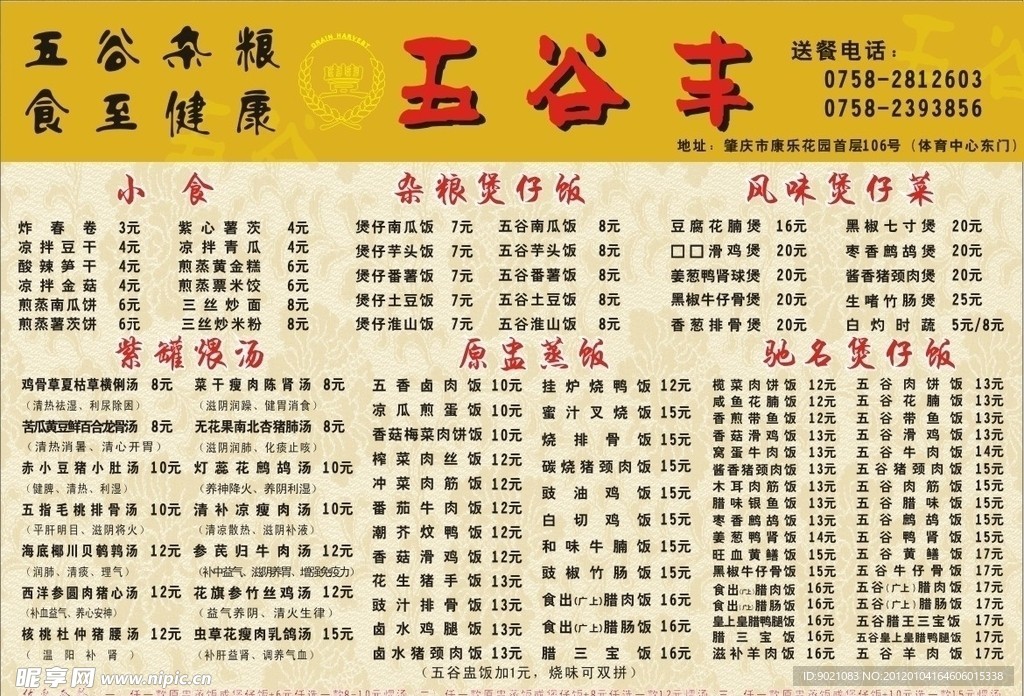 五谷杂粮
食至健康
GRAIN HARVEST
五谷丰
送餐电话：
0758-2812603
0758-2393856
地址：肇庆市康乐花园首层106号（体育中心东门）
小食
炸春卷 3元 紫心薯茨 4元
凉拌豆干 4元 凉拌青瓜 4元
酸辣笋干 4元 煎蒸黄金糕 6元
凉拌金菇 4元 煎蒸粟米饺 6元
煎蒸南瓜饼 6元 三丝炒面 8元
煎蒸薯茨饼 6元 三丝炒米粉 8元
杂粮煲仔饭
煲仔南瓜饭 7元 五谷南瓜饭 8元
煲仔芋头饭 7元 五谷芋头饭 8元
煲仔番薯饭 7元 五谷番薯饭 8元
煲仔土豆饭 7元 五谷土豆饭 8元
煲仔淮山饭 7元 五谷淮山饭 8元
风味煲仔菜
豆腐花腩煲 16元 黑椒七寸煲 20元
□□滑鸡煲 20元 枣香鹧鸪煲 20元
姜葱鸭肾球煲 20元 酱香猪颈肉煲 20元
黑椒牛仔骨煲 20元 生啫竹肠煲 25元
香葱排骨煲 20元 白灼时蔬 5元/8元
紫罐煨汤
鸡骨草夏枯草横脷汤 8元 菜干瘦肉陈肾汤 8元
（清热祛湿、利尿除困） （滋阴润躁、健胃消食）
苦瓜黄豆鲜百合龙骨汤 8元 无花果南北杏猪肺汤 8元
（清热消暑、清心开胃） （滋阴润肺、化痰止咳）
赤小豆猪小肚汤 10元 灯蕊花鹧鸪汤 10元
（健脾、清热、利湿） （养神降火、养阴利湿）
五指毛桃排骨汤 10元 清补凉瘦肉汤 10元
（平肝明目、滋阴将火） （清凉散热、滋阴补液）
海底椰川贝鹌鹑汤 12元 参芪归牛肉汤 12元
（润肺、清痰、理气） （补中益气、滋阴养胃、增强免疫力）
西洋参圆肉猪心汤 12元 花旗参竹丝鸡汤 12元
（补血益气、养心安神） （益气养阴、清火生律）
核桃杜仲猪腰汤 12元 虫草花瘦肉乳鸽汤 15元
（温阳补肾） （补肝益肾、调养气血）
原盅蒸饭
五香卤肉饭 10元 挂炉烧鸭饭 12元
凉瓜煎蛋饭 10元 蜜汁叉烧饭 15元
香菇梅菜肉饼饭 10元 烧排骨饭 15元
榨菜肉丝饭 12元 碳烧猪颈肉饭 15元
冲菜肉筋饭 12元 豉油鸡饭 15元
番茄牛肉饭 12元 白切鸡饭 15元
潮芥炆鸭饭 12元 和味牛腩饭 15元
香菇滑鸡饭 12元 豉椒竹肠饭 15元
花生猪手饭 13元 食出(广上)腊肉饭 16元
豉汁排骨饭 13元 食出(广上)腊肠饭 16元
卤水鸡腿饭 13元 腊三宝饭 16元
卤水猪颈饭 13元
（五谷盅饭加1元，烧味可双拼）
驰名煲仔饭
榄菜肉饼饭 12元 五谷肉饼饭 13元
咸鱼花腩饭 12元 五谷花腩饭 13元
香煎带鱼饭 12元 五谷带鱼饭 13元
香菇滑鸡饭 13元 五谷滑鸡饭 13元
窝蛋牛肉饭 13元 五谷牛肉饭 14元
酱香猪颈肉饭 13元 五谷猪颈肉饭 15元
木耳肉筋饭 13元 五谷肉筋饭 15元
腊味银鱼饭 13元 五谷腊味饭 15元
枣香鹧鸪饭 13元 五谷鹧鸪饭 15元
姜葱鸭肾饭 14元 五谷鸭肾饭 15元
旺血黄鳝饭 15元 五谷黄鳝饭 17元
黑椒牛仔骨饭 15元 五谷牛仔骨饭 17元
食出(广上)腊肉饭 16元 五谷(广上)腊肉饭 17元
食出(广上)腊肠饭 16元 五谷(广上)腊肠饭 17元
皇上皇腊鸭腿饭 16元 五谷腊王三宝饭 17元
腊三宝饭 16元 五谷皇上皇腊鸭腿饭 17元
滋补羊肉饭 16元 五谷羊肉饭 17元
昵享网 www.nipic.cn
ID:9021083 NO:20120104164606015338